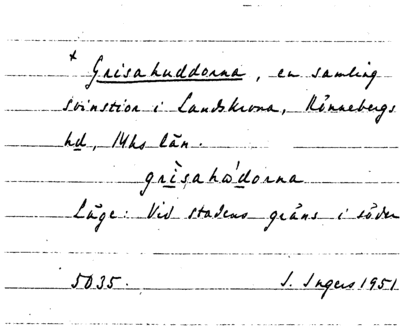 * Grisahuddorna, en samling
svinstior i Landskrona, Rönnebergs
hd, Mhs län.
grìsahω'dorna
Läge: Vid stadens gräns i söder
5035. I. Ingers 1951